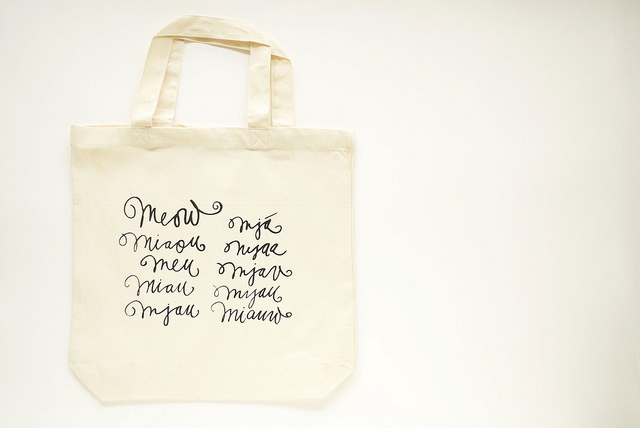 Meow
miaou
meu
miau
mjau
mjá
nyaa
mjav
myau
miauw